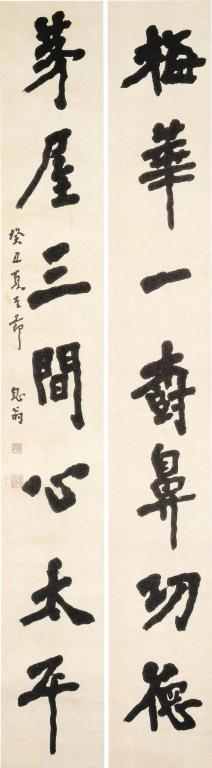 梅華一樹鼻功德
茅屋三間心太平
癸丑夏至節 息翁